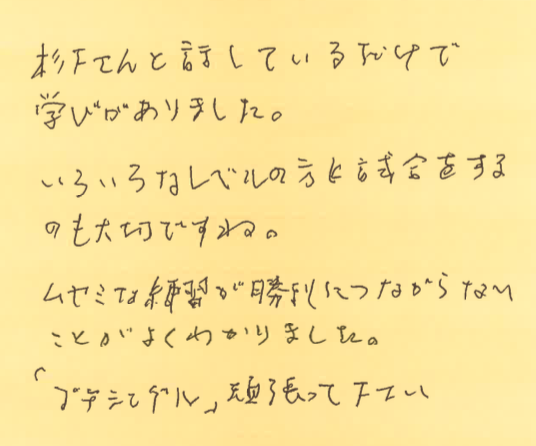 杉下さんと話しているだけで
学びがありました。
いろいろなレベルの方と試合をする
のも大切ですね。
ムヤミな練習が勝利につながらない
ことがよくわかりました。
「プチシングル」頑張って下さい